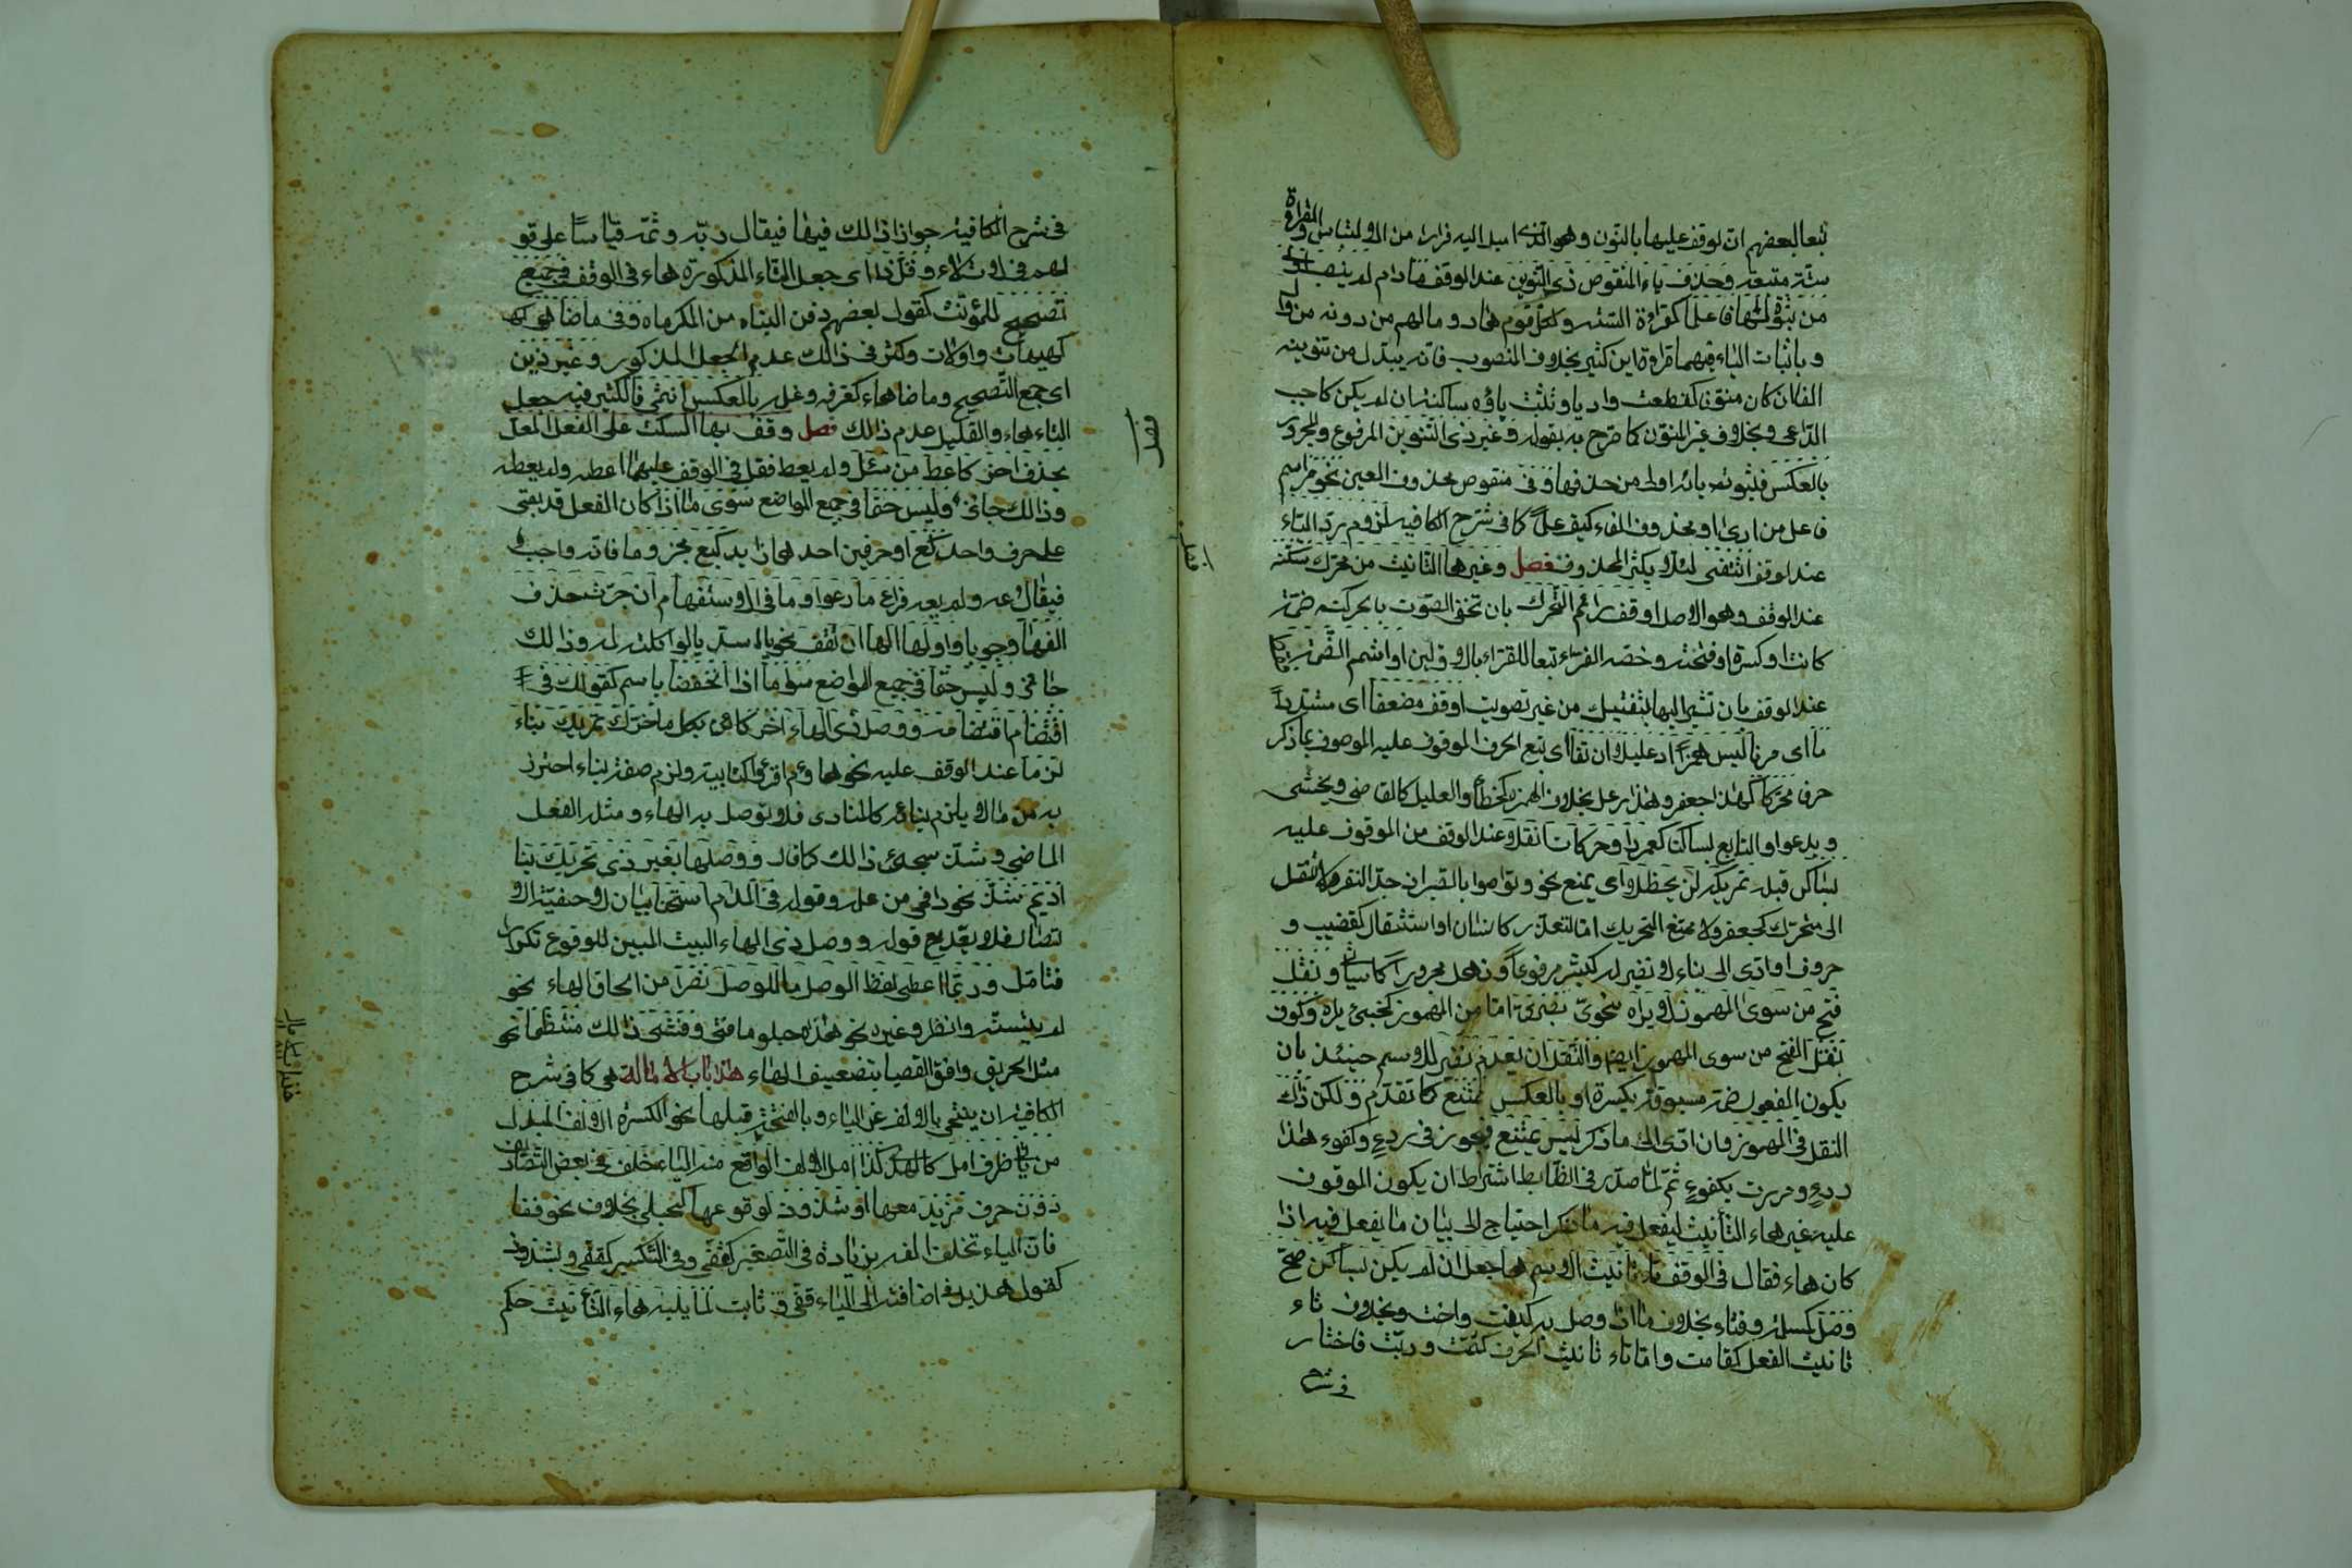 تبعا لبعضهم ان لوقف عليها بالنون و هو الذى اميل اليه فرارا من الالتباس والقراءة
سنة متبعة وحذف ياء المنقوص ذى التنوين عند الوقف مادام لم ينصب اولى
من ثبوتها فاعلما كقراءة الستة ولكل قوم هاد و مالهم من دونه من وال
و باثبات الياء فيهما قراءة ابن كثير بخلاف المنصوب فانه يبدل من تنوينه
الفا ان كان منونا كقطعت واديا و تثبت ياؤه ساكنة ان لم يكن كاجب
الداعى و بخلاف غير المنون كما صرح به بقوله وغير ذى التنوين المرفوع والمجرور
بالعكس فثبوت يائه اولى من حذفها و فى منقوص محذوف العين نحو مر اسم
فاعل من ارى او محذوف الفاء كيف علما كما فى شرح الكافيه لزوم رد الياء
عند الوقف اقتفى لئلا يكثر المحذوف فصل وغير ها التانيث من محرك سكنه
عند الوقف و هو الاصل او قف رائم التحرك بان تخفى الصوت بالحركة ضمة
كانت او كسرة او فتحة و خصه الفراء تبعا للقراء بالاولين او اشمم الضمة
عند الوقف بان تشير اليها بشفتيك من غير تصويت او قف مضعفا اى مشددا
ما اى حرفا ليس همزا او عليلا ان قفا اى تبع الحرف الموقوف عليه الموصوف بما ذكر
حرفا محركا كهذا جعفر و هذا رعل بخلاف الهمزه كخطأ والعليل كالقاضى و يخشى
و يدعو او التابع لساكن كعمرو او حركات انقلا عند الوقف من الموقوف عليه
لساكن قبله تحريكه لن يحظلا اى يمنع نحو و تواصوا بالصبر ان جد النقر ولا تنقل
الى متحرك كجعفر ولا ممتنع التحريك اما لتعذر كانسان او استثقال كقضيب و
خروف او ادى الى بناء لا نظير له كبشر مرفوعا و ذهل مجرورا كما سياتى و نقل
فتح من سوى المهموز لا يراه نحوى بصرى اما من المهموز كخبئ يراه و كوف
نقل الفتح من سوى المهموز ايضا والنقل ان يعدم نظير للاسم حينئذ بان
يكون المنقول ضمة مسبوقة بكسرة او بالعكس ممتنع كما تقدم و لكن ذاك
النقل فى المهموز وان ادى الى ما ذكر ليس يمتنع فيجوز فى ردء وكفوء هذا
ردء و مررت بكفوء ثم لما صدر فى الضابط اشتراط ان يكون الموقوف
عليه غير هاء التأنيث ليفعل فيه ما ذكر احتاج الى بيان ما يفعل فيه اذا
كان هاء فقال فى الوقف تا تانيث الاسم ها جعل ان لم يكن لساكن صح
وصل كمسلمة و فتاة بخلاف ما اذا وصل به كبنت واخت و بخلاف تاء
تانيث الفعل كقامت واما تاء تانيث الحرف كثمت و ربت فاختار
فى شرح
فى شرح الكافية جواز ذالك فيها فيقال ربه و ثمه قياسا على قو
لهم فى لات لاه و قل ذا اى جعل التاء المذكورة هاء فى الوقف فى جمع
تصحيح للمؤنث كقول بعضهم دفن البناه من المكرماه و فى ماضاهى له
كهيهات و اولات و كثر فى ذالك عدم الجعل المذكور و غير ذين
اى جمع التصحيح و ماضاهاه كغرفه و غلمه بالعكس انتمى فالكثير فيه جعل
التاء هاء والقليل عدم ذالك فصل وقف بها السكت على الفعل المعل
بحذف اخر كاعط من سئل و لم يعط فقل فى الوقف عليهما اعطه و لم يعطه
و ذالك جائز وليس حتما فى جميع المواضع سوى ما اذا كان الفعل قد بقى
على حرف واحد كع او حرفين احدهما زايد كيع مجزوما فانه واجب
فيقال عه و لم يعه فراع ما رعوا و ما فى الاستفهام ان جرت حذف
الفها وجوبا و اولها الها ان تقف نحو يا اسدى يا لوا كلته لمه و ذالك
جائز و ليس حتما فى جميع المواضع سوى ما اذا انخفضا باسم كقولك فى
اقتضا م اقتضا مه و وصل ذى الهاء اخر كاهو بكل ما حرك تحريك بناء
لزما عند الوقف عليه نحو هاؤم اقرؤا كتابيه و لزم صفة لبناء احترز
به من ما لا يلزم بناؤه كالمنادى فلا توصل به الهاء و مثله الفعل
الماضى و شذ سجدئ ذالك كما قال و وصلها بغير ذى تحريك بنا
اديم شذ نحو ذا فى من علو و قوله فى المدام استحسنا بيان لاحقيته الا
تصال فلا يعد مع قوله و وصل ذى الهاء البيت المبين للوقوع تكرار
فتامل و ربما اعطى لفظ الوصل ما للوصل نثرا من الحاق الهاء نحو
لم يتسنه وانظر و غيره نحو هذه حبلو يا فتى و فشى ذالك منتظما نحو
مثل الحريق وافق القصبا بتضعيف الهاء هذا باب الامالة هى كما فى شرح
الكافية ان ينتحى بالالف نحو الياء و بالفتحة قبلها نحو الكسرة الالف المبدل
من يا فى طرف امل كالهدى كذا امل الالف الواقع منه الياء خلف فى بعض التصاريف
دون حرف مزيد معها او شذوذ لوقوعها كحبلى بخلاف نحو قفا
فان الياء تخلف الفه بزيادة فى التصغير كقفى و فى التكسير كقفى و بشذوذ
كقول هذيل فى اضافته الى الياء قفى و ثابت لما يليه هاء التأنيث حكم
فصل
فصل